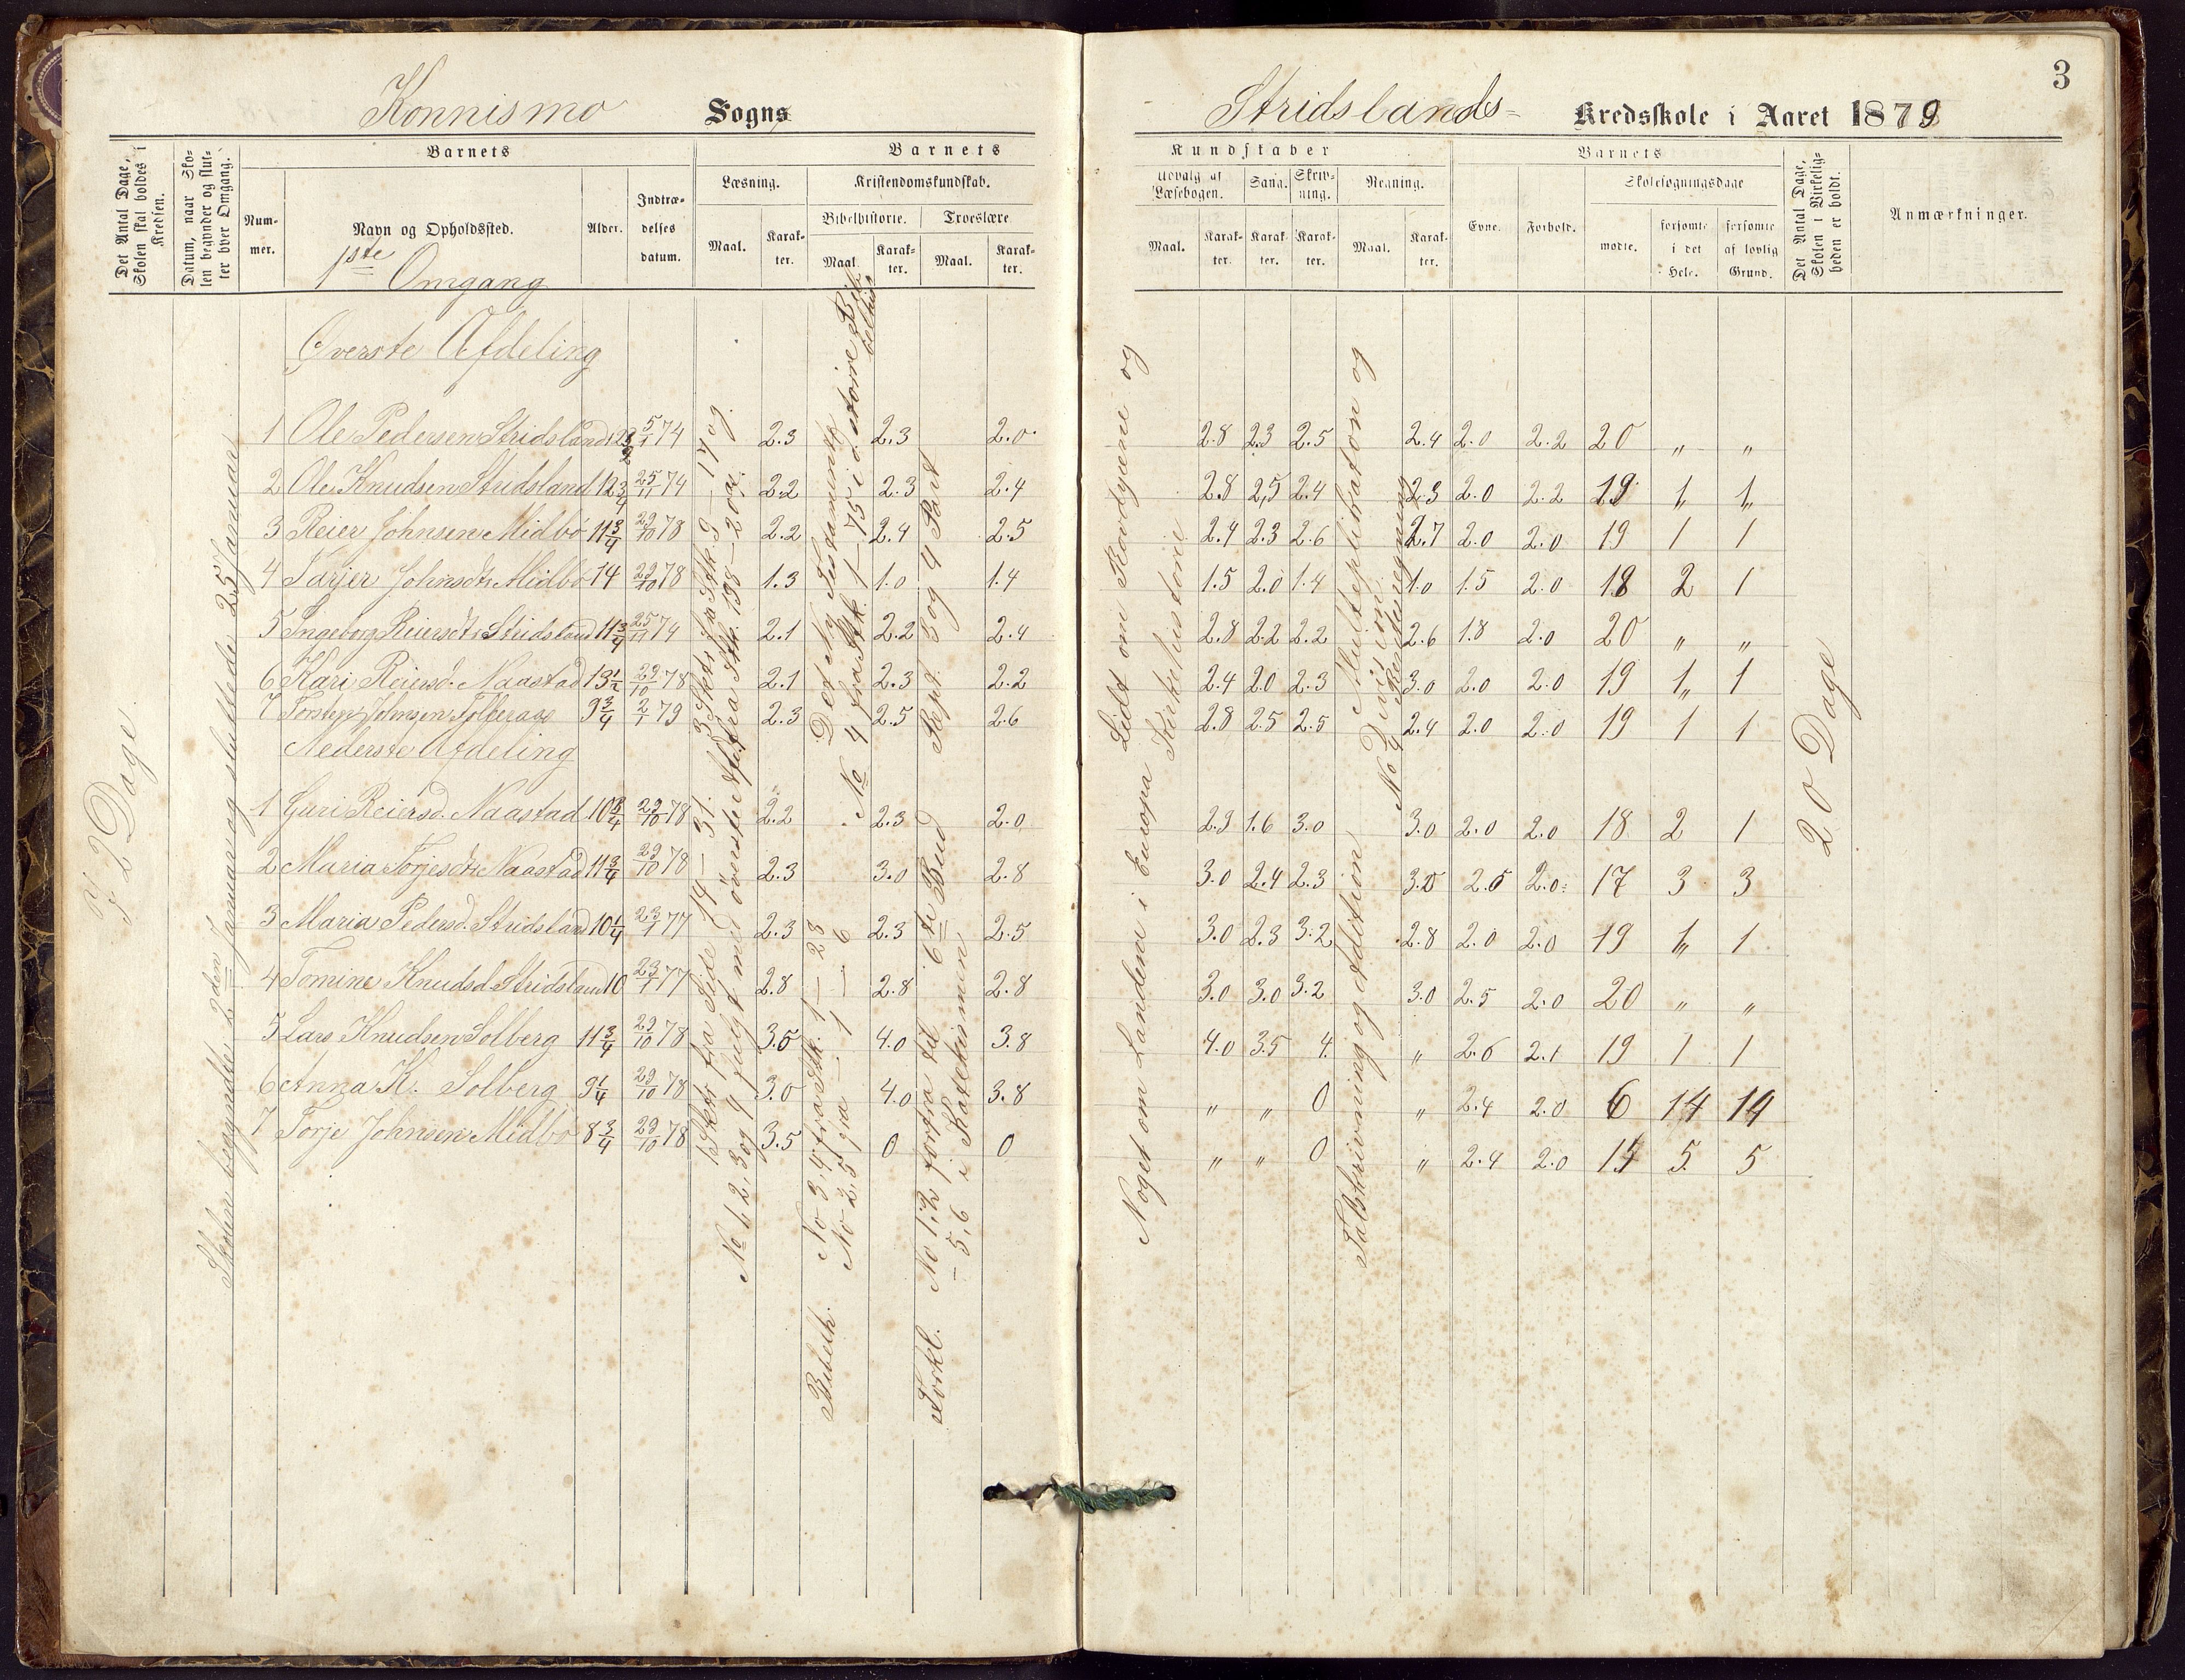 3
Konnismo Sogns Stridslands- Kredsskole i Aaret 1879
Det Antal Dage, Skolen skal holdes i Kredsen.
Datum, naar Skolen begynder og slutter hver Omgang.
Barnets
Nummer.
Navn og Opholdssted.
Alder.
Indtrædelses datum.
Barnets
Læsning.
Maal.
Karakter.
Kristendomskundskab.
Bibelhistorie.
Maal.
Karakter.
Troeslære
Maal.
Karakter.
Kundskaber
Udvalg af Læsebogen.
Maal.
Karakter.
Sang.
Karakter.
Skrivning.
Karakter.
Regning.
Maal.
Karakter.
Barnets
Evne.
Forhold.
Skolesøgningsdage
mødte.
forsømte i det Hele.
forsømte af lovlig Grund.
Det Antal Dage, Skolen i Virkeligheden er holdt.
Anmærkninger.
1ste Omgang
Øverste Afdeling
1 Ole Pedersen Stridsland 12 5/1 74 2.3 2.3 2.0 2.8 2.3 2.5 2.4 2.0 2.2 20 „ „
2 Ole Knudsen Stridsland 12 3/4 25/11 74 2.2 2.3 2.4 2.8 2,5 2.4 2.3 2.0 2.2 19 1„ 1„
3 Reier Johnsen Midbø 11 3/4 29/10 78 2.2 2.4 2.5 2.4 2.3 2.6 2.7 2.0 2.0 19 1 1
4 Tarjer Johnsdtr Midbø 14 29/10 78 1.3 1.0 1.4 1.5 2.0 1.4 1.0 1.5 2.0 18 2 1
5 Ingeborg Reiersdtr Stridsland 11 3/4 25/11 74 2.1 2.2 2.4 2.8 2.2 2.2 2.6 1.8 2.0 20 „ „
6 Kari Reiersd. Naastad 13 1/2 29/10 78 2.1 2.3 2.2 2.4 2.0 2.3 3.0 2.0 2.0 19 1„ 1
7 Johnsen 9 3/4 2/1 79 2.3 2.5 2.6 2.8 2.5 2.5 2.4 2.0 2.0 19 1 1
Nederste Afdeling
1 Guri Reiersd. Naastad 10 3/4 29/10 78 2.2 2.3 2.0 2.3 1.6 3.0 3.0 2.0 2.0 18 2 1
2 Maria Torjesdtr Naastad 11 3/4 29/10 78 2.3 3.0 2.8 3.0 2.4 2.3 3.0 2.5 2.0 17 3 3
3 Maria Pedersd. Stridsland 10 1/4 23/1 77 2.3 2.3 2.5 3.0 2.3 3.2 2.8 2.0 2.0 19 1„ 1
4 Tomine Knudsd. Stridsland 10 23/1 77 2.8 2.8 2.8 3.0 3.0 3.2 3.0 2.5 2.0 20 „ „
5 Lars Knudsen Solberg 11 3/4 29/10 78 3.5 4.0 3.8 4.0 3.5 4. „ 2.6 2.1 19 1 1
6 Anna K. Solberg 9 1/4 29/10 78 3.0 4.0 3.8 „ „ 0 „ 2.4 2.0 6 14 14
7 Torje Johnsen Midbø 8 3/4 29/10 78 3.5 0 0 „ „ 0 „ 2.4 2.0 15 5 5
72 Dage.
Skolen begyndte 2den Januar og sluttede 25 Januar
3 Skr fra Stk. 9 — 17 og
fra Stk. 198 – 200 a.
Det Ny Testamente
No 4 fra Stk. 1 – 75 i d. større Bibelhist
Rept. 3 og 4 Part
1 Skr fra Side 14 – 31.
No 1, 2, 3 og 4 fulgt med øverste Afd.
Bibelh. No 3, 4 fra Stk. 1 – 28
No 2, 5 fra – 1 – 6
Forkl. No 1, 2 forfra til 6te Bud
– 5, 6 i Katekismen
Lidt om Rovdyrene og
Kirkehistorie
Noget om Landene i Europa
Multeplikation og
Division
No 4 Rentesregning
Talskrivning og Addition
20 Dage